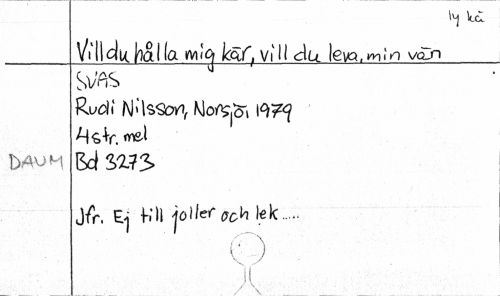 ly kä
Vill du hålla mig kär, vill du leva, min vän
SVAS
Rudi Nilsson, Norsjö, 1979
4 str. mel
DAUM Bd 3273
Jfr. Ej till joller och lek.....